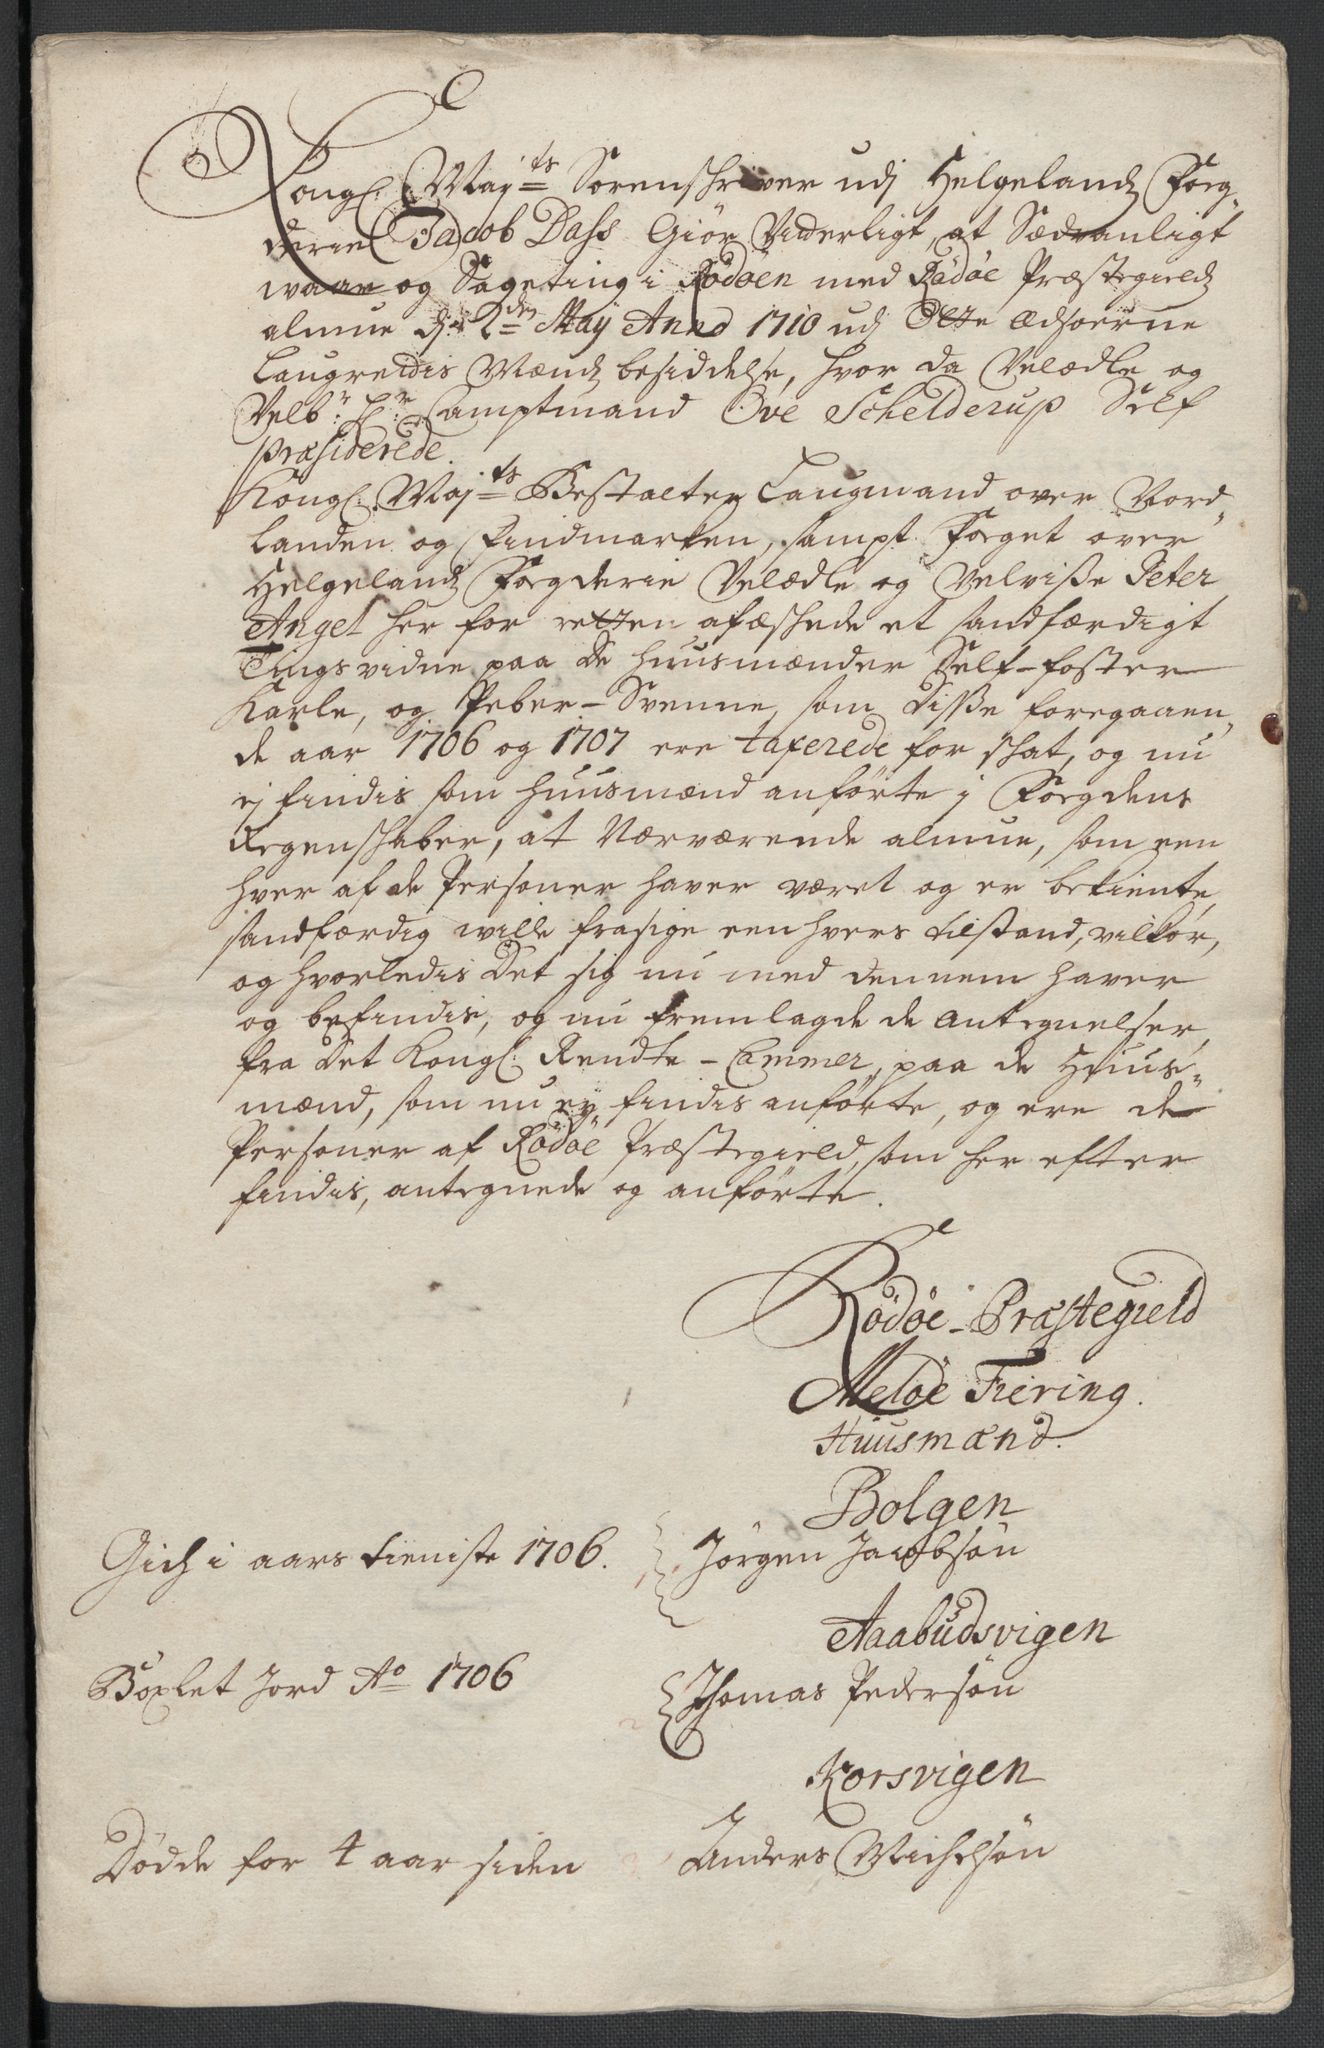 Kongl: May:ts Sorenschriver udj Helgelands Fog-
derie Jacob Dass Giør Viderligt, at Sædvanligt
waar og Sageting i Rödöen med Rödöe Præstegields
almue d: 2den Maÿ Anno 1710 udj Otte Ædsoerne
Laugrettis Mænds besiddelse, hvor da Velædle og
Velb:r Hr: Camptmand Ove Schelderup Self
præsiderede.
Kongl: May:ts Bestalter Laugmand over Nord-
landen og Findmarken, sampt Foget over
Helgelands Fogderie Velædle og Velviſse Peter
Angel her for retten afæskede et sandfærdigt
Tings vidne paa de huusmænder Self-foster
Karle, og Peber-Svenne, som disse foregaaen-
de aar 1706 og 1707 ere taxerede for skat, og nu
ej findis som huusmænd anførte j Fogdens
Regenskaber, at Nærværende almue, som een
hver af de Personer haver været og er bekiente,
sandfærdig wille frasige een hvers tilstand, vilkor,
og hvorledis det sig nu med dennem haver
og befindis, og nu fremlagde de antegnelser,
fra det Kongl: Rendte-Cammer, paa de Huus-
mænd, som nu eÿ findis anførte, og ere de
Personer af Rödöe Præstegield, som her efter
findis, antegnede og anførte.
Rödöe-Præstegield
Melöe Fiering.
Huusmænd.
Bolgen
Gich i aars tieniste 1706. Jörgen Jacobsøn
Aabudsvigen
Böxlet Jord Ao 1706 Thomas Pedersøn
Korsvigen
Dödde for 4 aar siden Anders Michelsøn